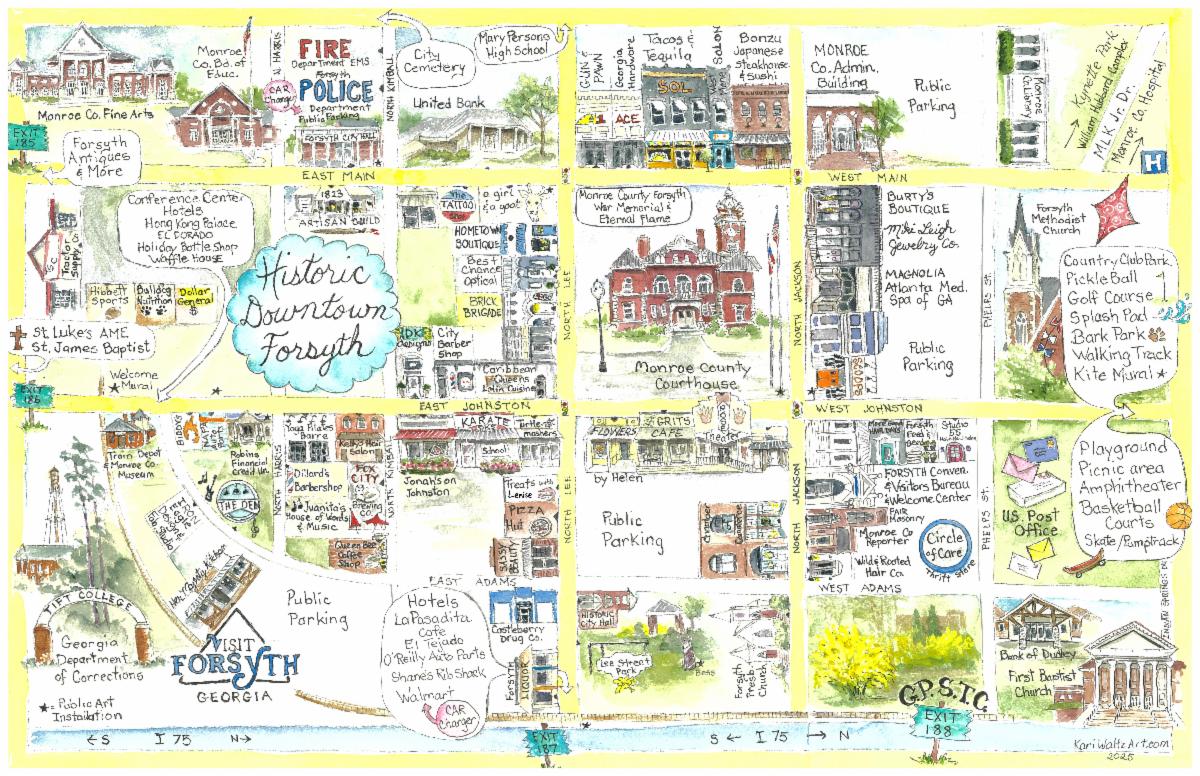 Monroe
Co. Bd. of
Educ.
N. HARRIS
FIRE
Department EMS
Forsyth
POLICE
Department
Public Parking
CAR
Charger
FORSYTH CITY HALL
NORTH KIMBALL
City
Cemetery
Mary Persons
High School
United Bank
NORTH LEE
GUN
PAWN
Georgia
Hardware
ACE
Tacos &
Tequila
SOL
SALON
Bonzu
Japanese
Steakhouse
& Sushi
MONROE
Co. Admin.
Building
Public
Parking
Monroe
Co. Library
Kynette Park
William Hubbard Complex
M.L.K. Jr. Dr.
Monroe Co. Hospital
H
Monroe Co. Fine Arts
EXIT
185
Forsyth
Antiques
& More
EAST MAIN
WEST MAIN
Conference Center
Hotels
Hong Kong Palace
EL DORADO
Holiday Bottle Shop
Waffle House
1823
ARTISAN BUILD
TATTOO
a girl
& a goat
HOMETOWN
BOUTIQUE
Best
Chance
Optical
BRICK
BRIGADE
DK
Designs
City
Barber
Shop
Caribbean
Queens
Latin Cuisine
NORTH LEE
Monroe County-Forsyth
War Memorial &
Eternal Flame
Monroe County
Courthouse
NORTH JACKSON
BURTY'S
BOUTIQUE
Miki Leigh
Jewelry Co.
MAGNOLIA
Atlanta Med.
Spa of GA
Public
Parking
SCOOPS
PHELPS ST.
Forsyth
Methodist
Church
Country Club Park
PickleBall
Golf Course
Splash Pad
Bark Park
Walking Track
Kite Mural
Tractor
Supply Co.
Hibbett
Sports
Bulldog
Nutrition
Dollar
General
St. Luke's AME
St. James Baptist
Welcome
Mural
Historic
Downtown
Forsyth
EXIT
186
EAST JOHNSTON
WEST JOHNSTON
Train Depot
& Monroe Co.
Museum
Robins
Financial
Credit Un.
THE DEN
Pilates
Barre
Kelly's Hair
Salon
Dillard's
Barbershop
Juanita's
House of Words
& Music
FOX
CITY
BREWING
CO.
Queen Bee
Coffee
Shop
NORTH KIMBALL
Jonah's on
Johnston
KARATE
School
Turtle-
mashers
Treats with
Lenise
PIZZA
HUT
SASSY
BEAUTY
NORTH LEE
FLOWERS
by Helen
GRITS
CAFE
Theater
Public
Parking
NORTH JACKSON
Forsyth
Feed
Studio
FORSYTH Conven.
& Visitors Bureau
& Welcome Center
FAIR
Masonry
Monroe Co
Reporter
Wild & Rooted
Hair Co.
Circle
of Care
Thrift Store
PHELPS ST.
U.S. Post
Office
Playground
Picnic area
Amphitheater
Basketball
Courts
Skate/Pumptrack
EAST ADAMS
WEST ADAMS
TIFT COLLEGE
Georgia
Department
of Corrections
Public Art
Installation
Public
Parking
VISIT
FORSYTH
GEORGIA
Hotels
La Pasadita
Cafe
El Tejado
O'Reilly Auto Parts
Shane's Rib Shack
Walmart
CAR
Charger
Casteberry
Drug Co.
FORSYTH
LIQUOR
HISTORIC
City Hall
Lee Street
Park
Forsyth
Presb.
Church
G.P.S.T.C.
Bank of Dudley
First Baptist
Church
INDIAN SPRINGS DR
← S I 75 N →
EXIT
187
S ← I 75 → N
EXIT
188
KariWaltzArt.com
2025